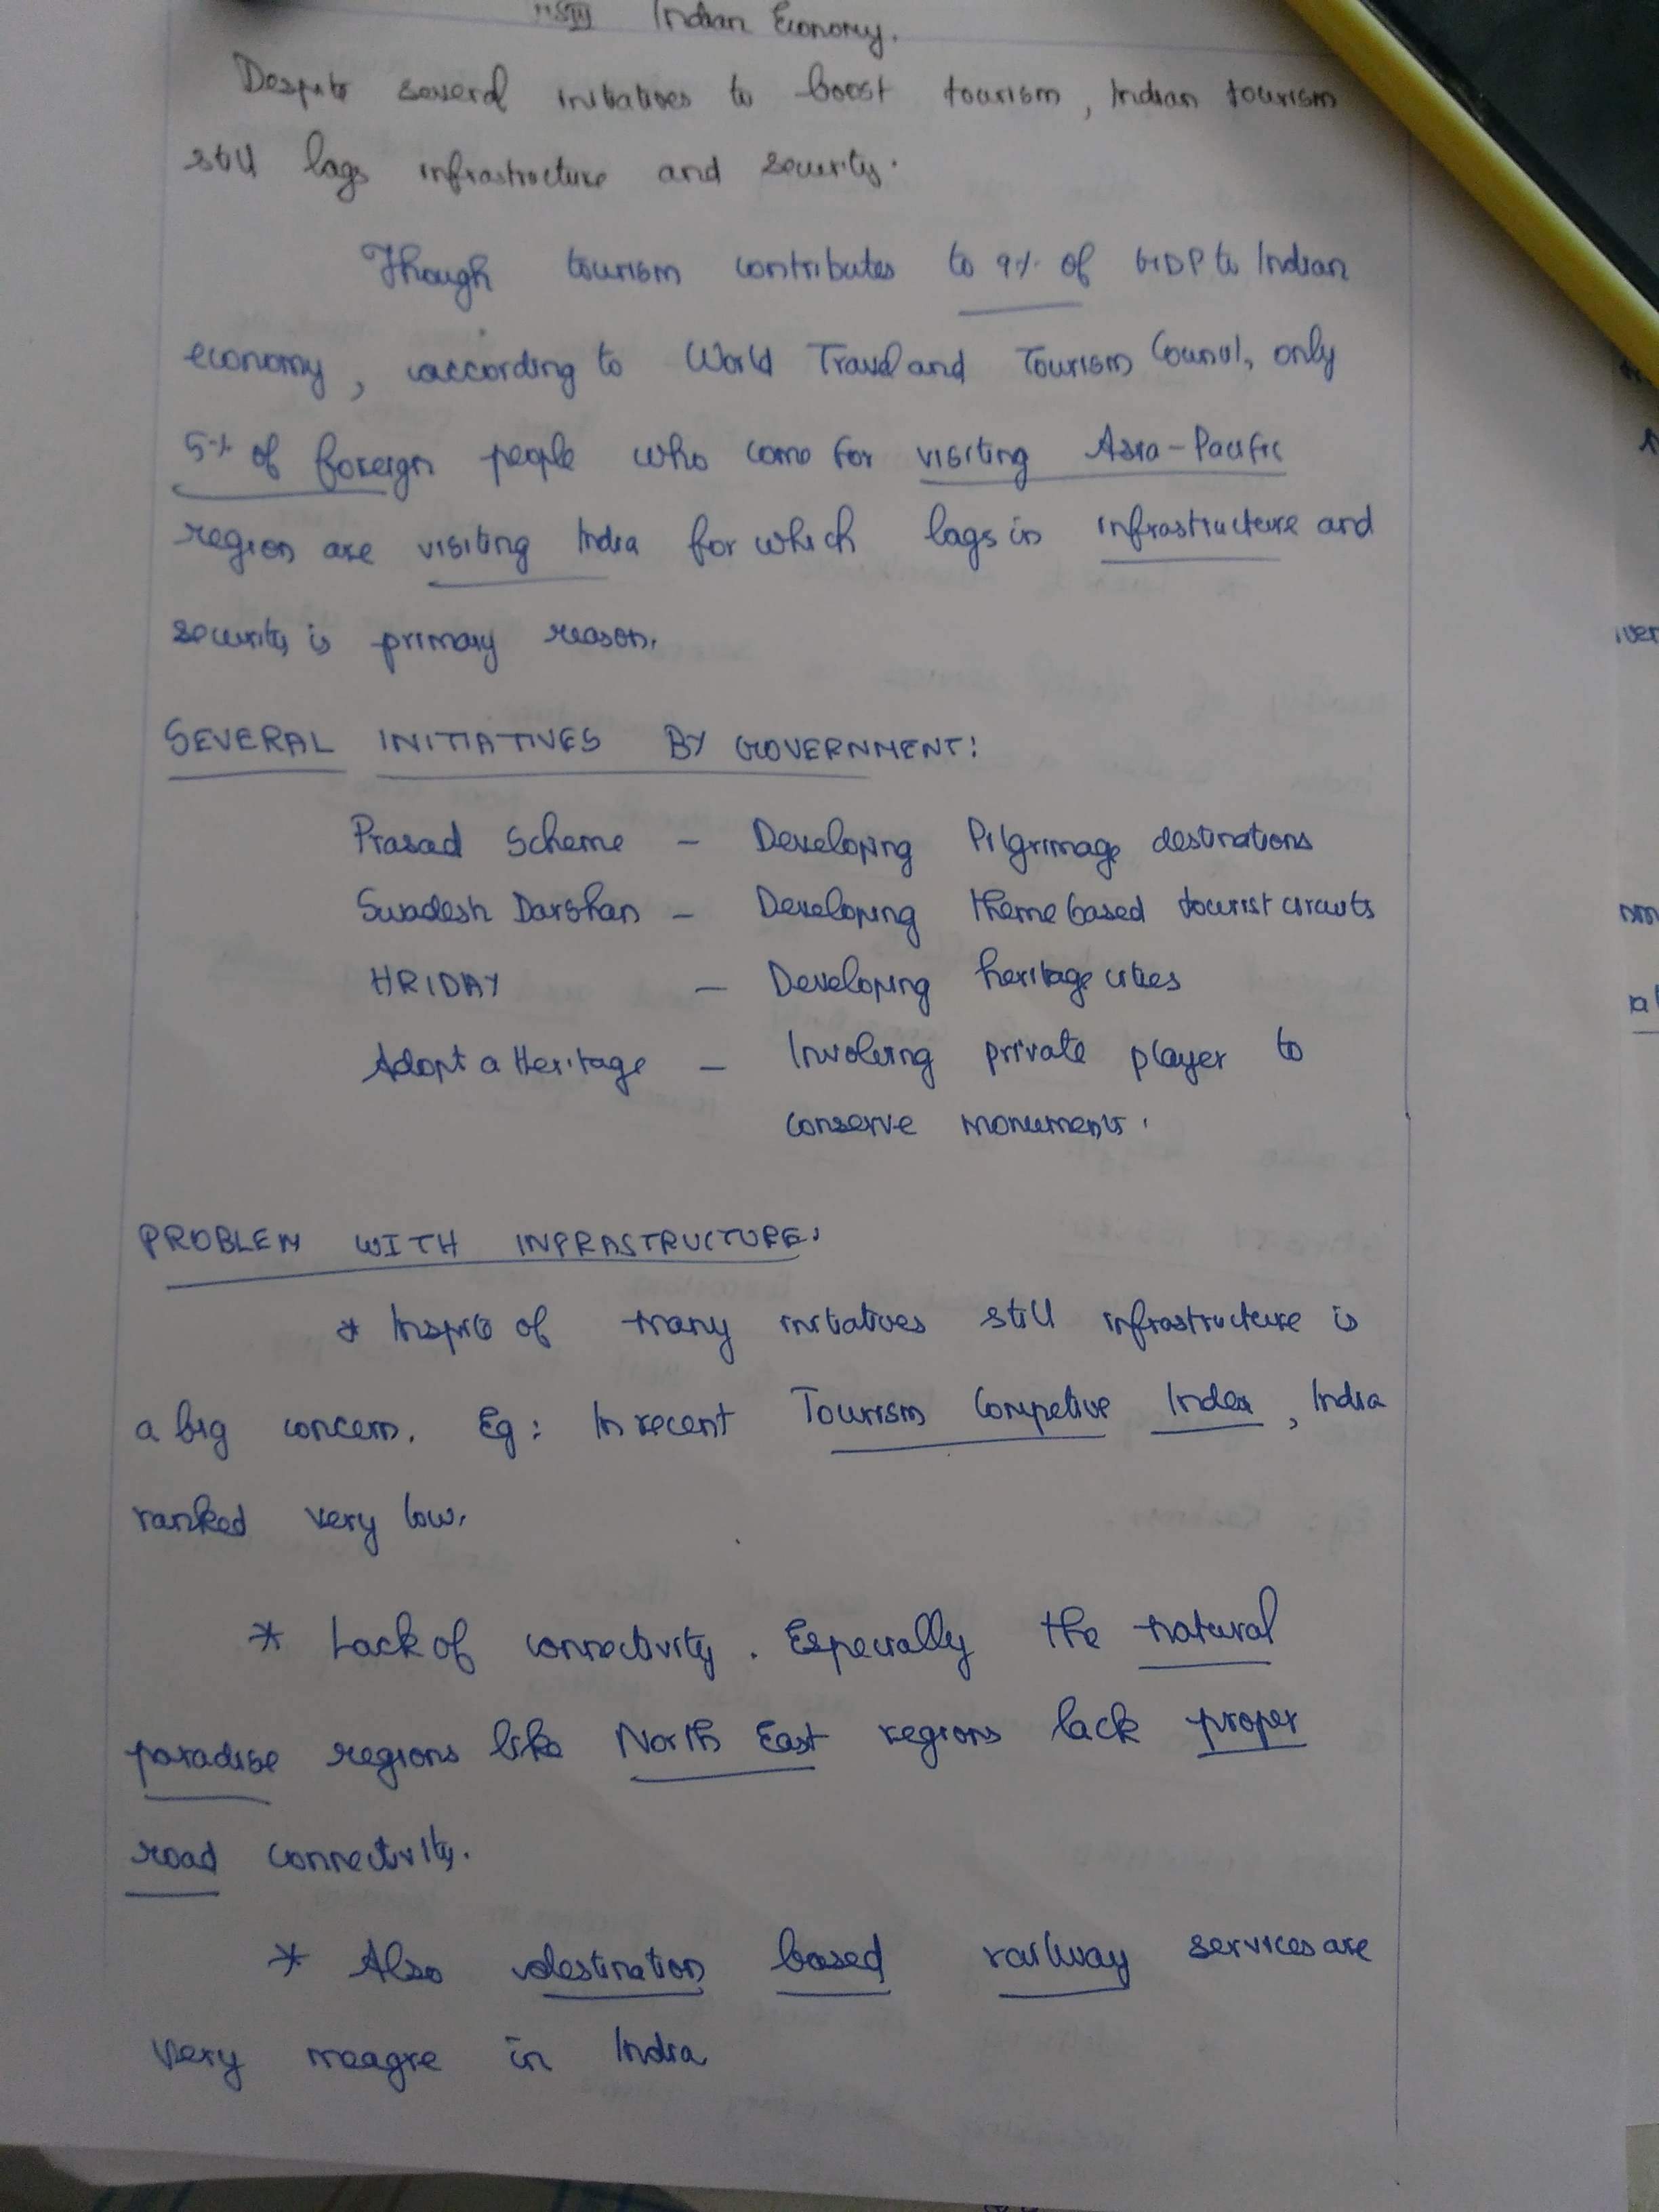 Indian Economy.
Despite several initiatives to boost tourism, Indian tourism
still lags infrastructure and security.
Though tourism contributes to 9% of GDP to Indian
economy, according to World Travel and Tourism Council, only
5% of foreign people who come for visiting Asia-Pacific
region are visiting India for which lags in infrastructure and
security is primary reason.
SEVERAL INITIATIVES BY GOVERNMENT:
Prasad Scheme - Developing Pilgrimage destinations
Swadesh Darshan - Developing theme based tourist circuits
HRIDAY - Developing heritage cities
Adopt a Heritage - Involving private player to
conserve monuments.
PROBLEM WITH INFRASTRUCTURE:
* Inspite of many initiatives still infrastructure is
a big concern. Eg: In recent Tourism Competive Index, India
ranked very low.
* Lack of connectivity. Especially the natural
paradise regions like North East regions lack proper
road connectivity.
* Also destination based railway services are
very meagre in India